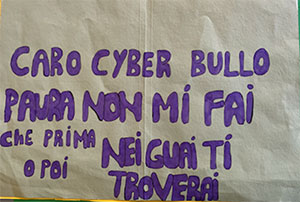 CARO CYBER BULLO
PAURA NON MÍ FAI
CHE PRIMA
O POI
NEI GUAI TÍ
TROVERAI